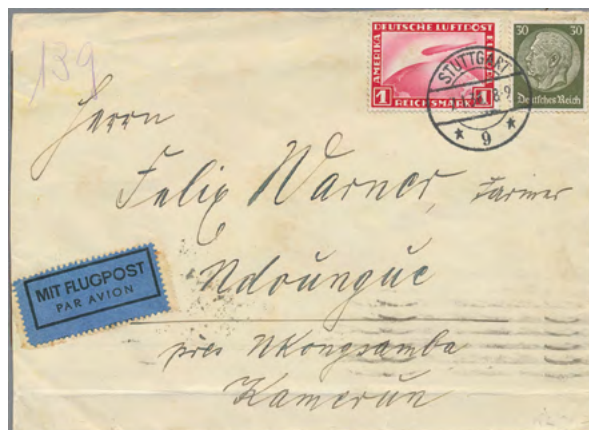 139
DEUTSCHE LUFTPOST
AMERIKA
1 REICHSMARK 1
30 30
Deutsches Reich
STUTTGART
8-9
* 9 *
Herrn
Felix Warner, Farmer
Ndoungue
près Nkongsamba
Kamerun
MIT FLUGPOST
PAR AVION